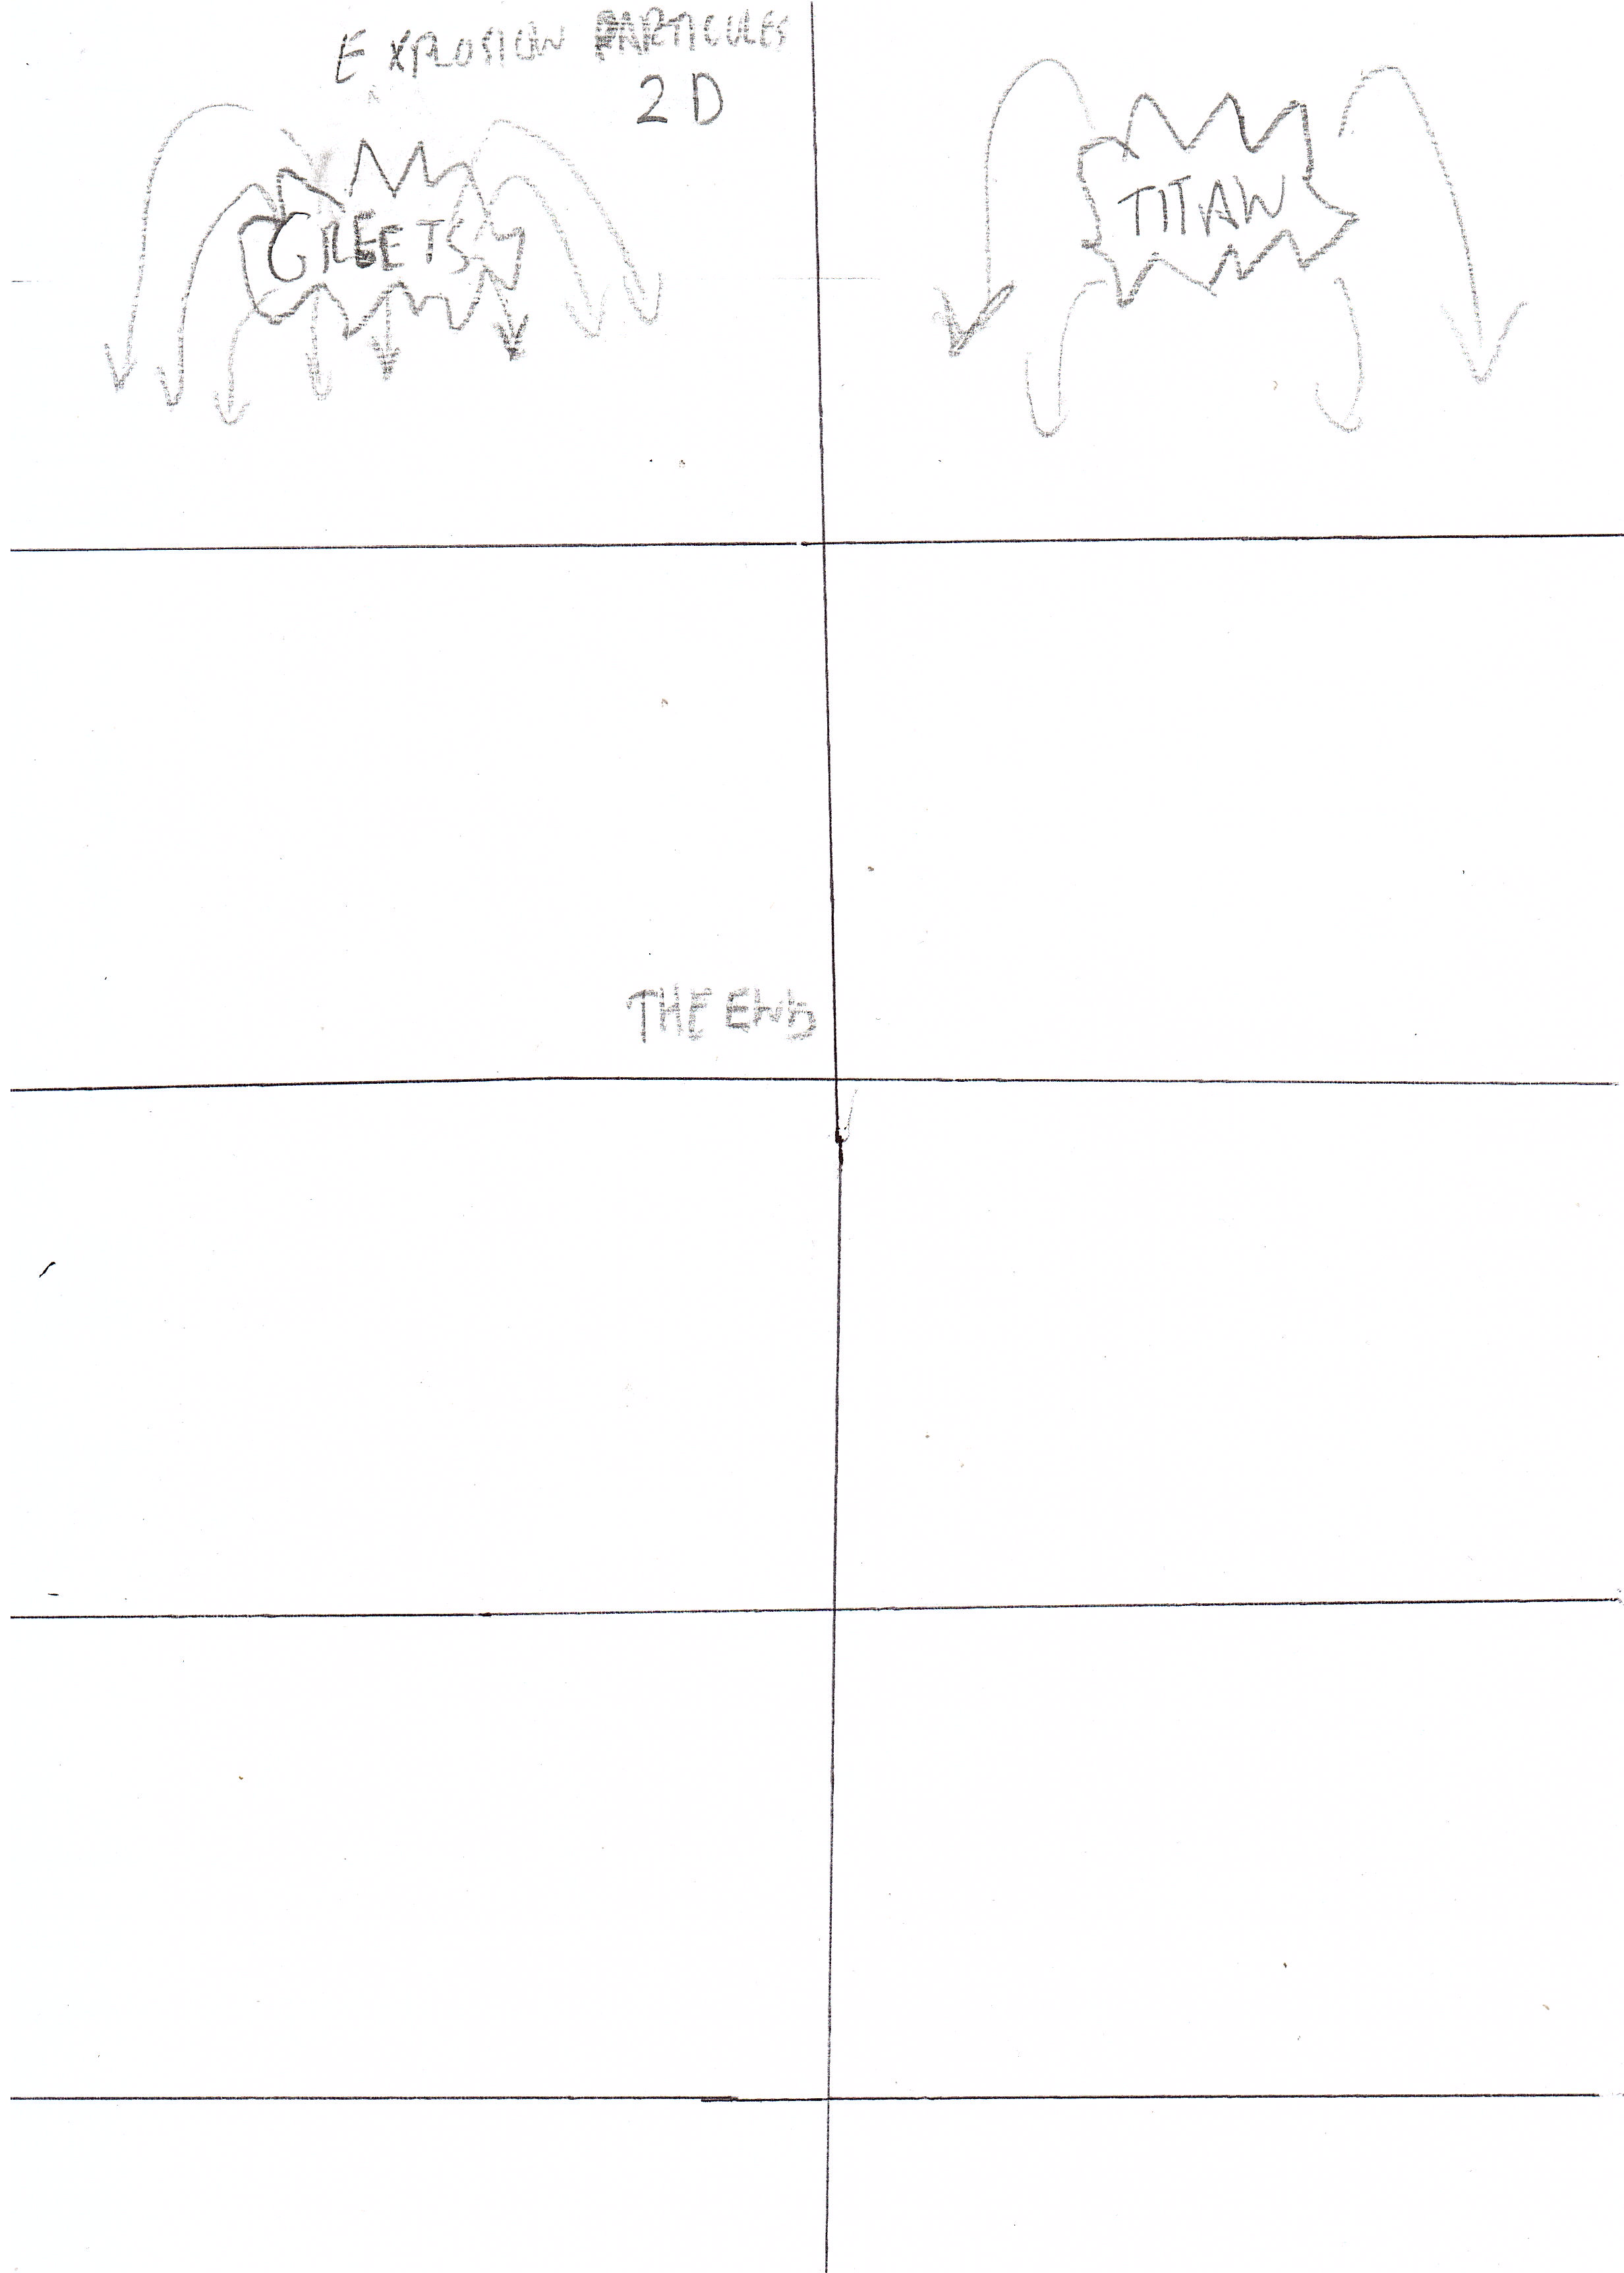 EXPLOSION PARTICULES
2D
GREETS
TITAN
THE END